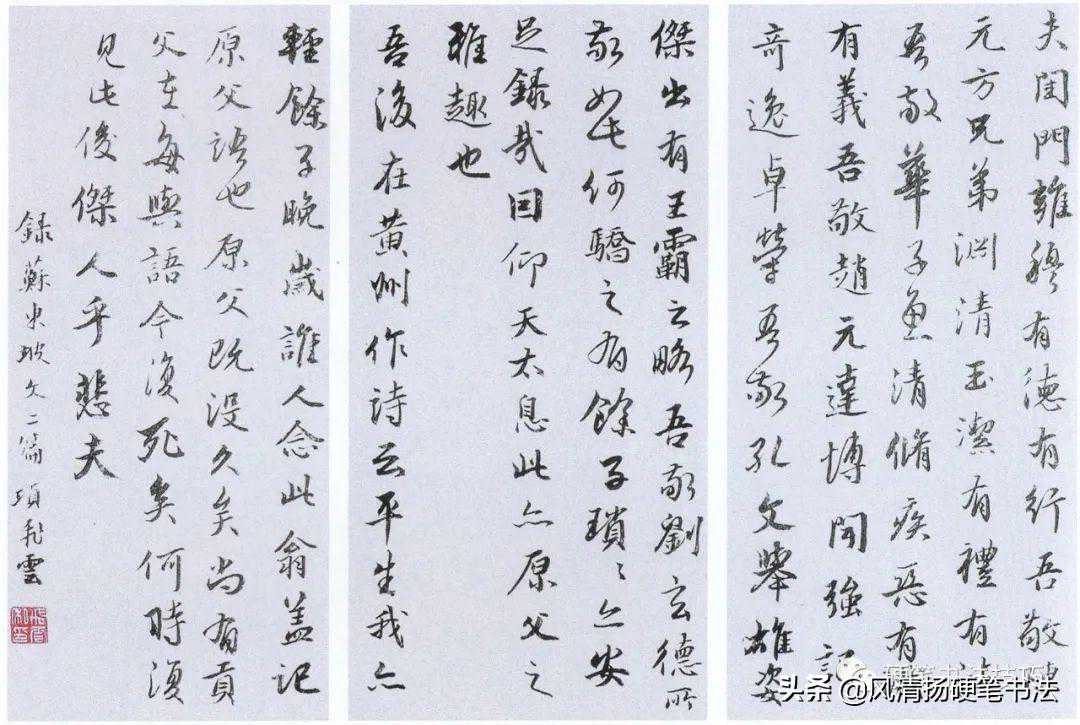 夫閨門雍穆有德有行吾敬
元方兄弟淵清玉潔有禮有法
吾敬華子魚清脩疾惡有
有義吾敬趙元達博聞強記
奇逸卓犖吾敬孔文舉雄姿
傑出有王霸之略吾敬劉玄德所
敬如此何驕之有餘子瑣〻亦安
足錄哉因仰天太息此亦原父之
雅趣也
吾後在黃州作詩云平生我亦
輕餘子晚歲誰人念此翁蓋記
原父語也原父既沒久矣尚有貢
父在每與語今復死矣何時復
見此俊傑人乎悲夫
錄蘇東坡文二篇 項飛雲
头条 @风清扬硬笔书法